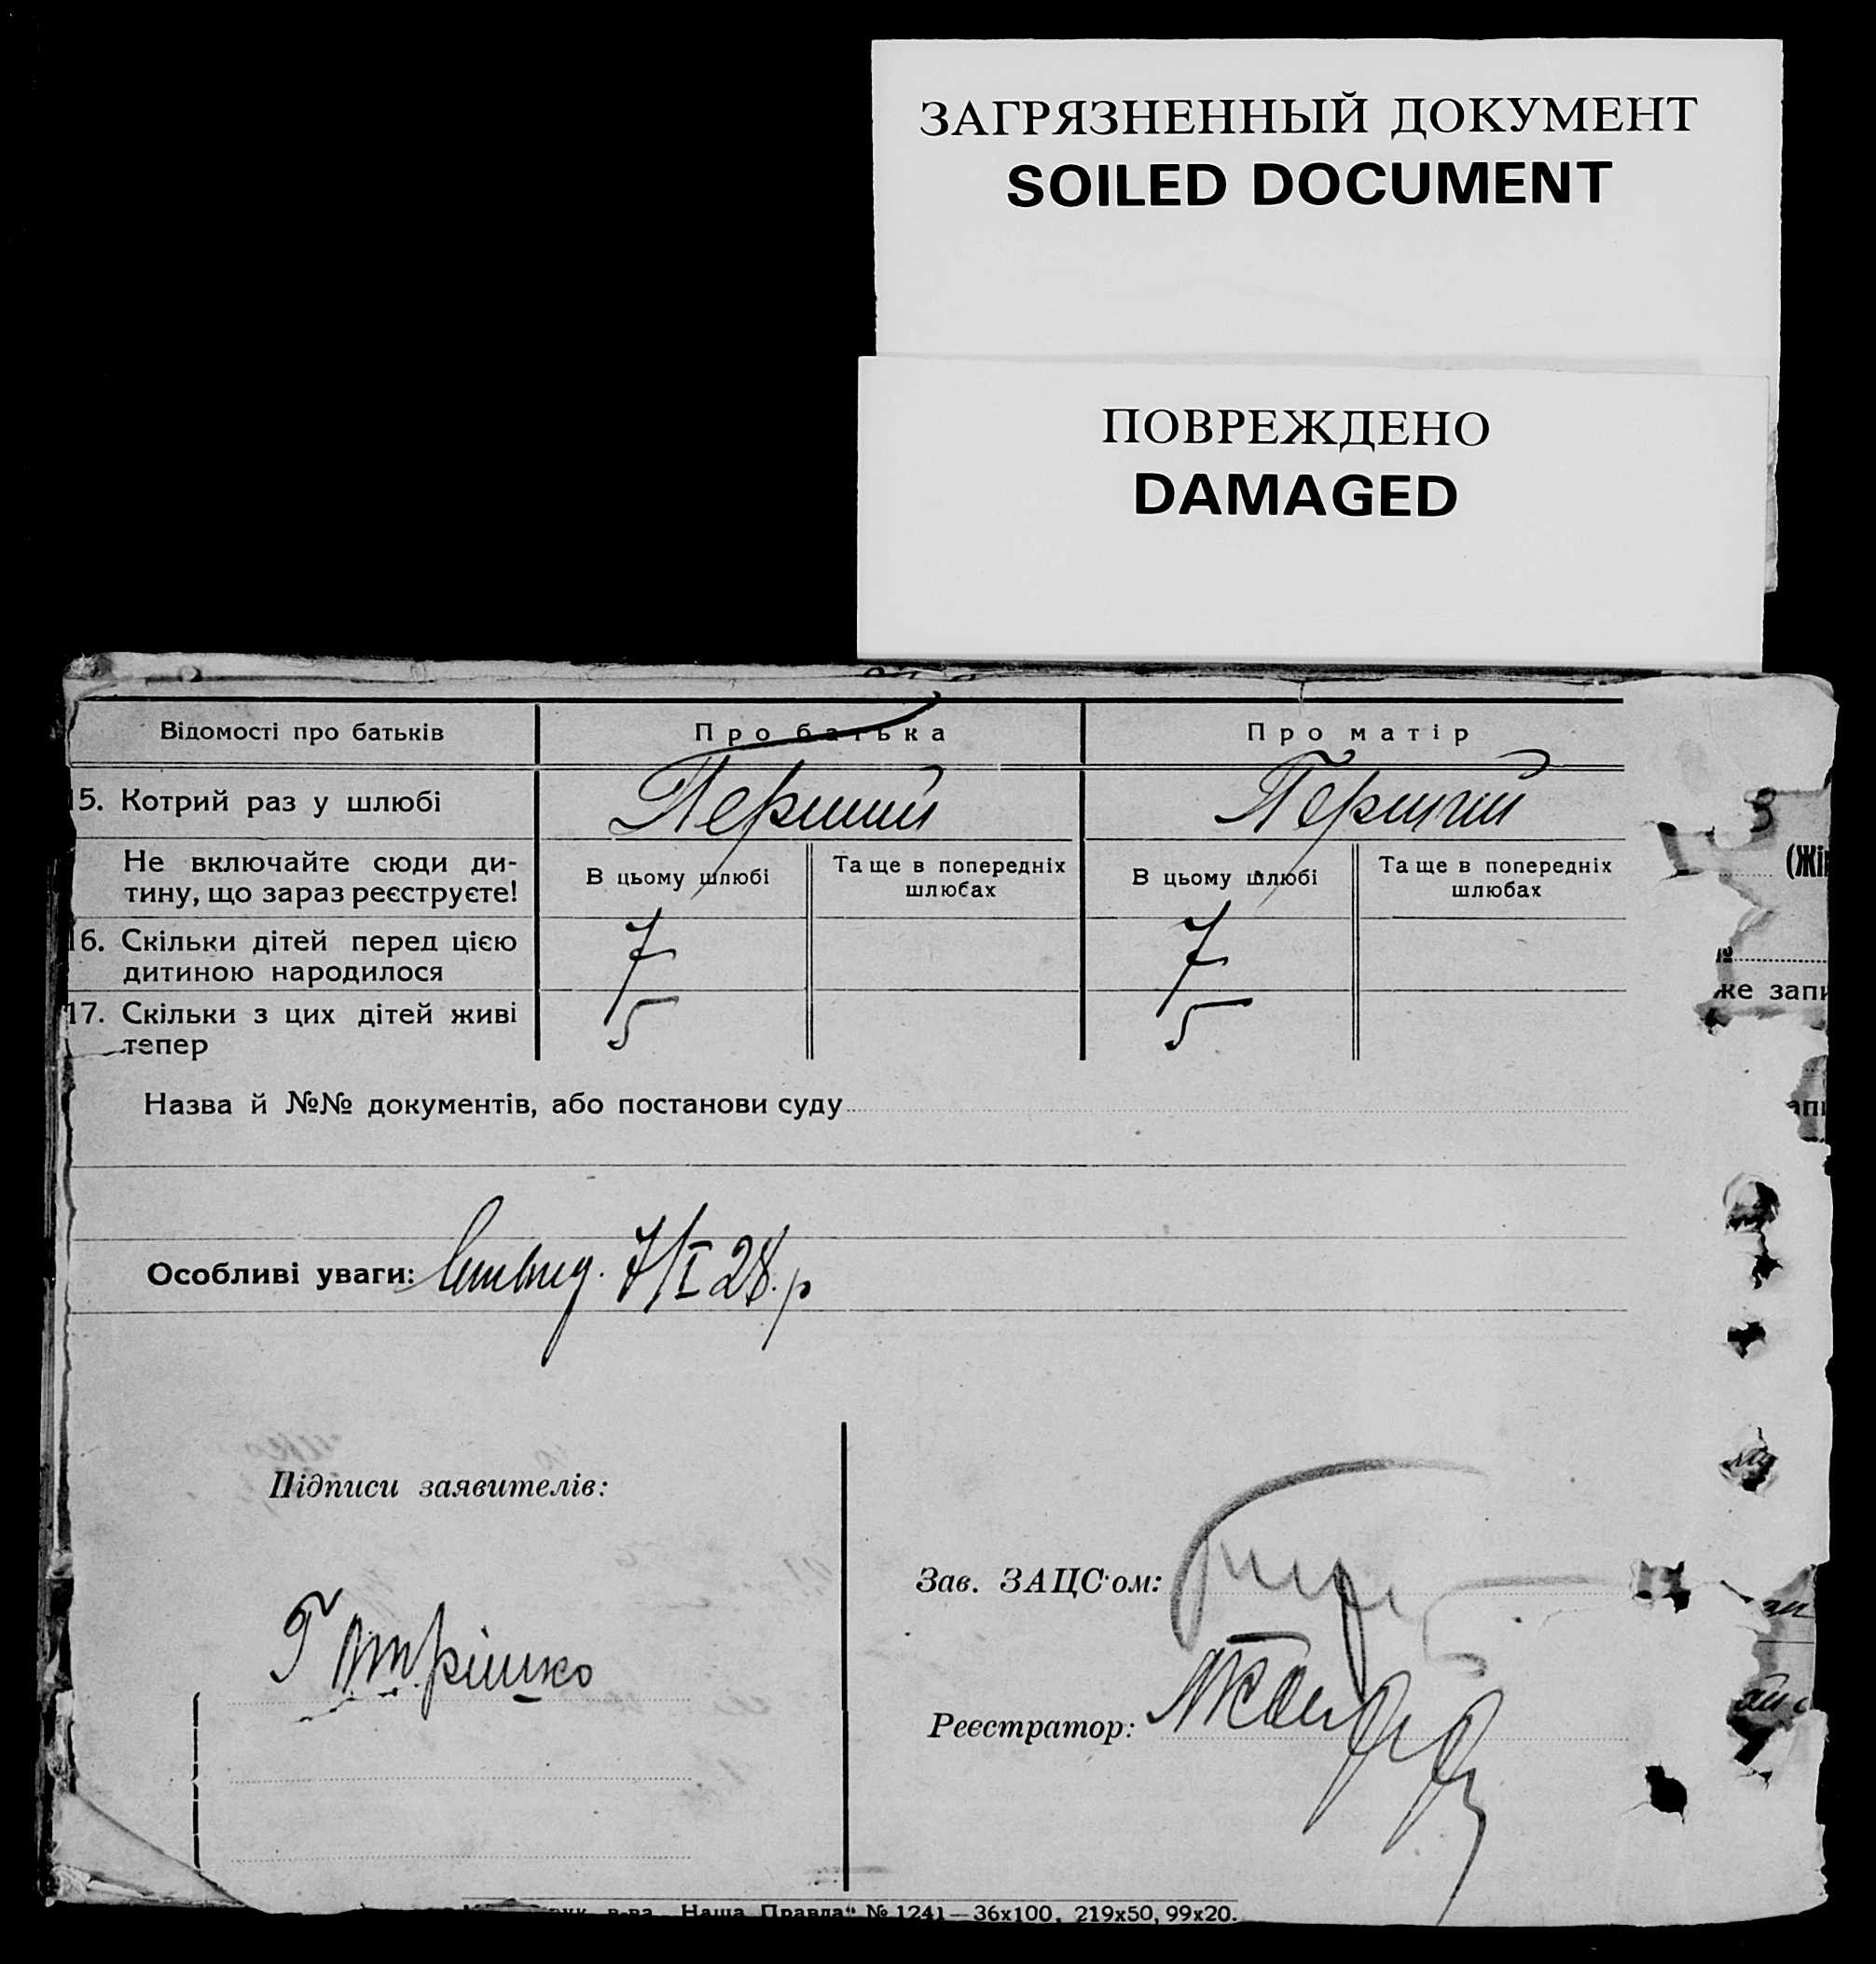 ЗАГРЯЗНЕННЫЙ ДОКУМЕНТ
SOILED DOCUMENT
ПОВРЕЖДЕНО
DAMAGED
Відомості про батьків Про батька Про матір
15. Котрий раз у шлюбі Перший Перший
Не включайте сюди ди-
тину, що зараз реєструєте!
В цьому шлюбі Та ще в попередніх шлюбах В цьому шлюбі Та ще в попередніх шлюбах
16. Скільки дітей перед цією
дитиною народилося 7 7
17. Скільки з цих дітей живі
тепер 5 5
Назва й №№ документів, або постанови суду
Особливі уваги: 7/I 28 р
Підписи заявителів:
Зав. ЗАЦС'ом:
Реєстратор:
в-ва „Наша Правда“ № 1241—36х100, 219х50, 99х20.
3
(Жі
№
же запи